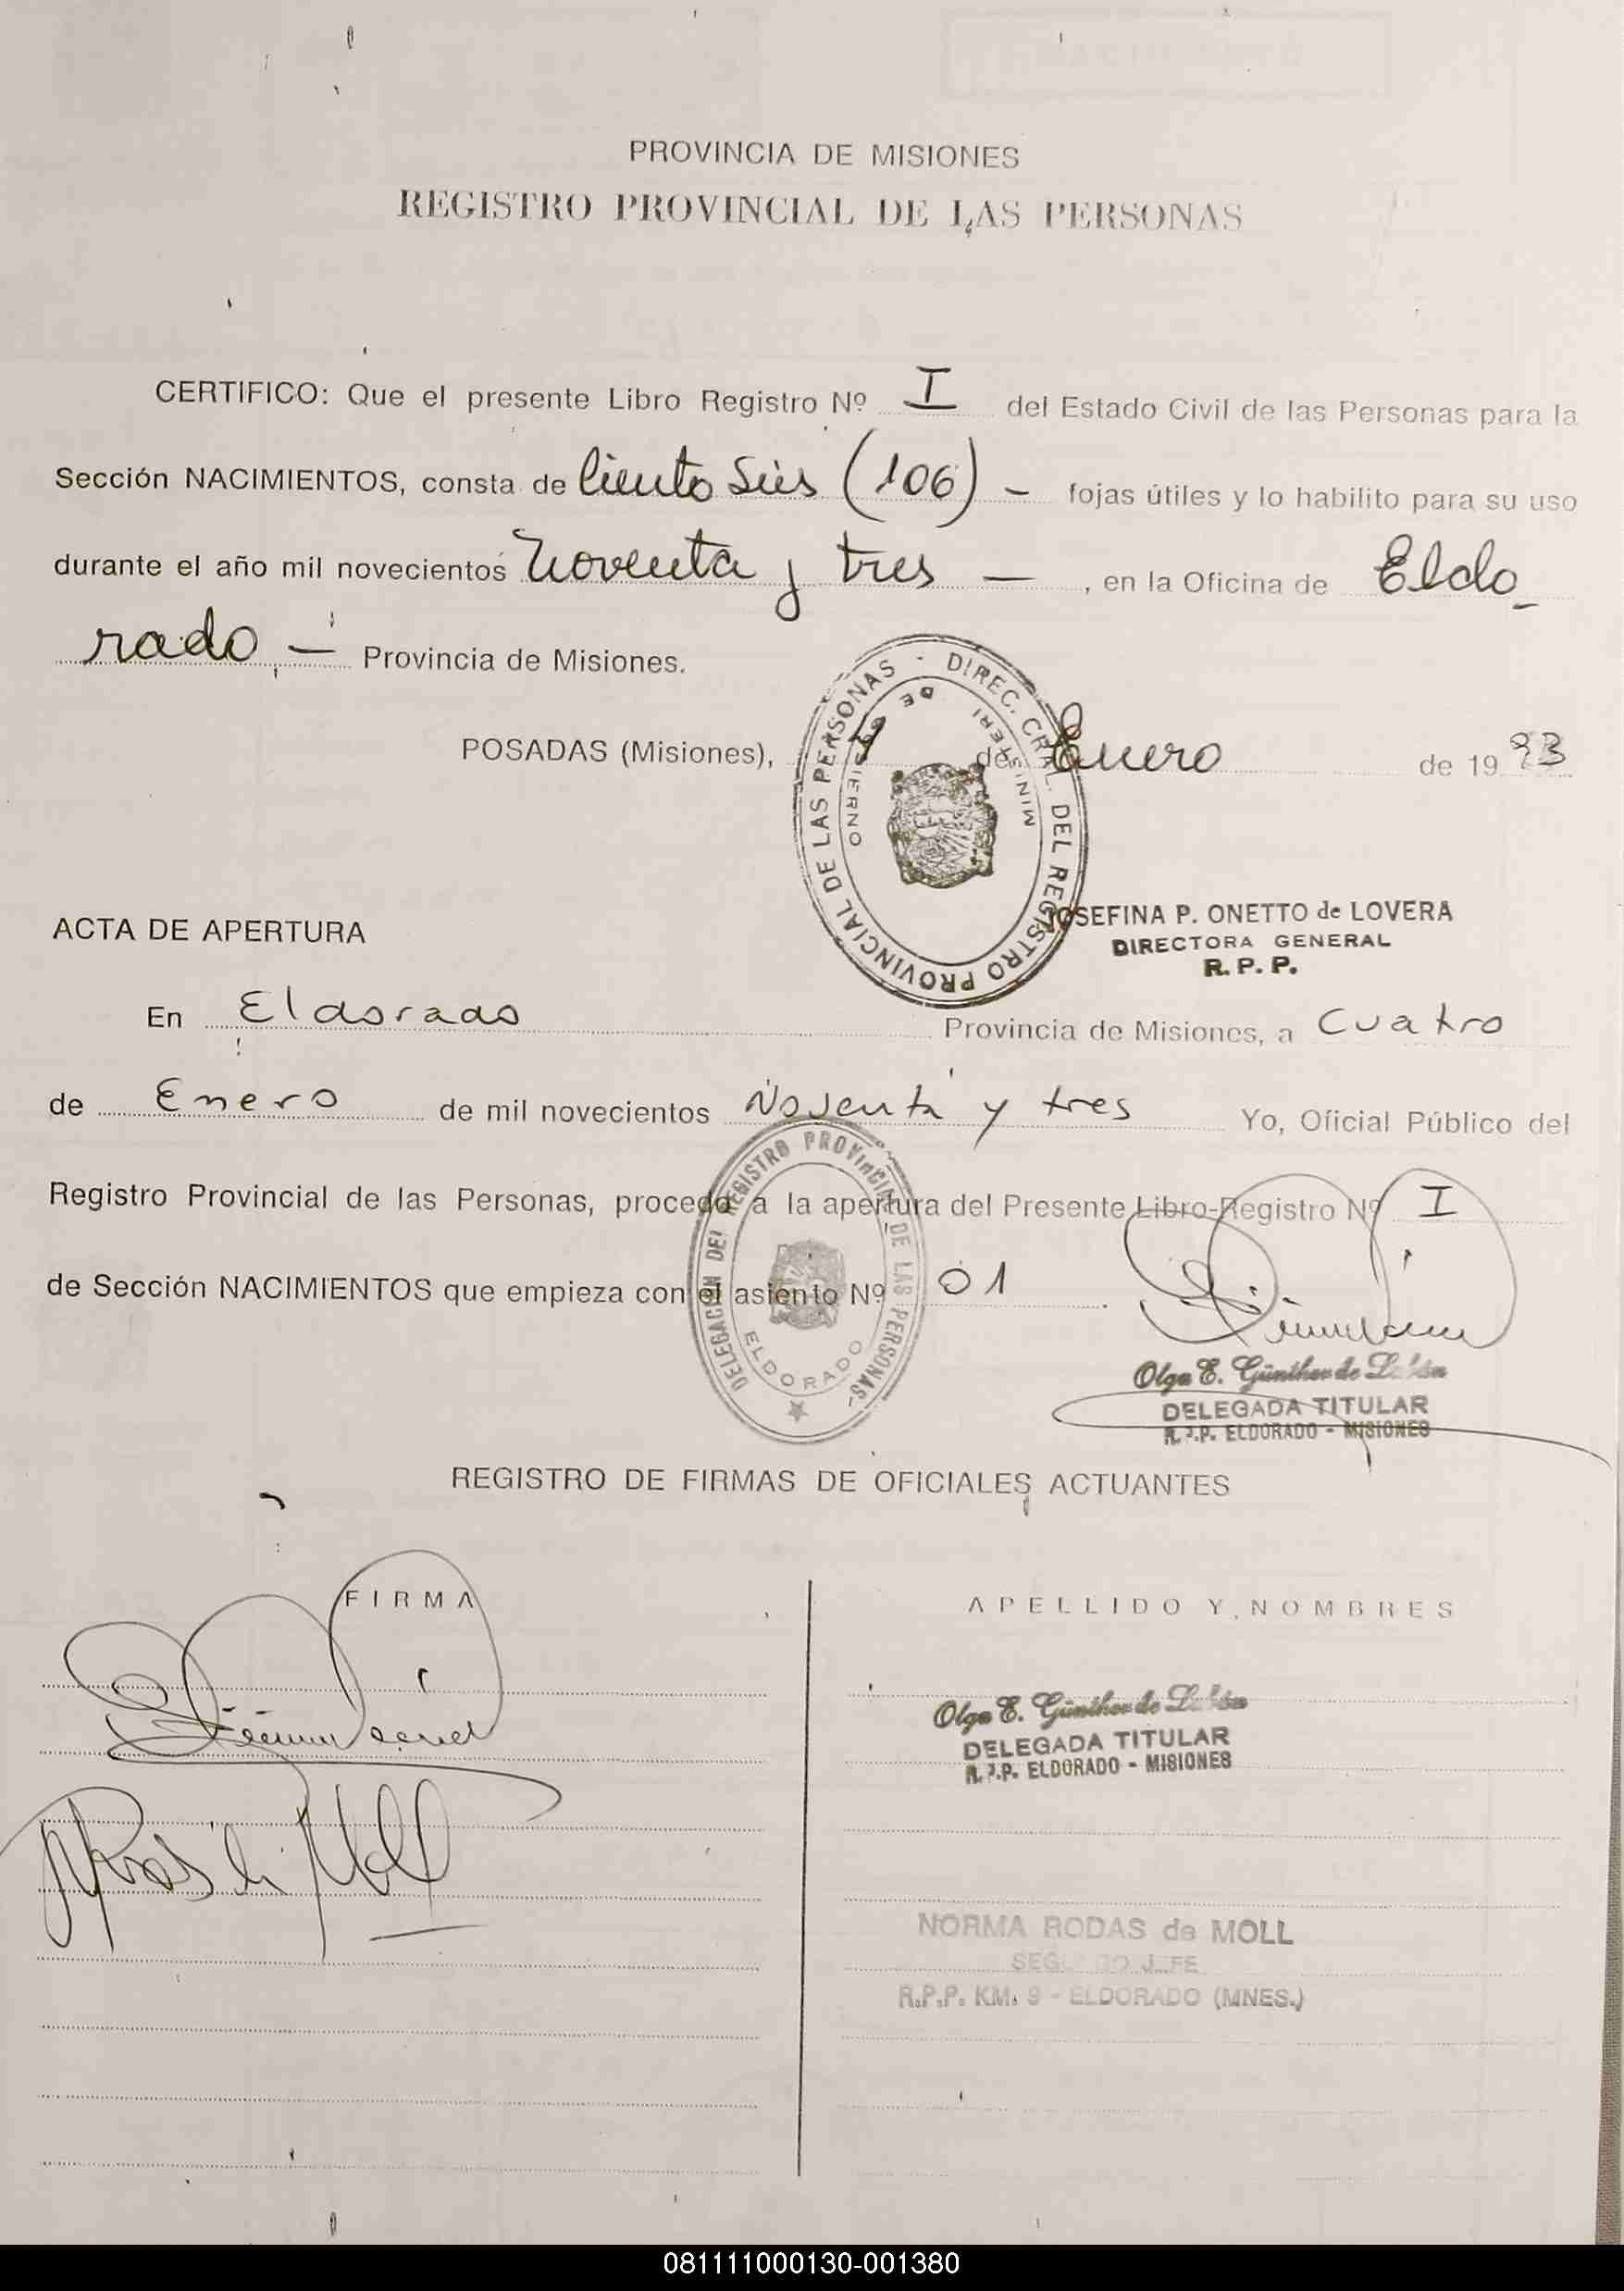 PROVINCIA DE MISIONES
REGISTRO PROVINCIAL DE LAS PERSONAS
CERTIFICO: Que el presente Libro Registro Nº I del Estado Civil de las Personas para la
Sección NACIMIENTOS, consta de Ciento Seis (106) - fojas útiles y lo habilito para su uso
durante el año mil novecientos Noventa y tres - , en la Oficina de Eldo_
rado. - Provincia de Misiones.
POSADAS (Misiones), de Enero de 1993
DIREC. GRAL. DEL REGISTRO PROVINCIAL DE LAS PERSONAS -
MINISTERI DE GOBIERNO
JOSEFINA P. ONETTO de LOVERA
DIRECTORA GENERAL
R. P. P.
ACTA DE APERTURA
En Eldorado Provincia de Misiones, a Cuatro
de Enero de mil novecientos Noventa y tres Yo, Oficial Público del
Registro Provincial de las Personas, procedo a la apertura del Presente Libro-Registro Nº I
de Sección NACIMIENTOS que empieza con el asiento Nº 01 .
DELEGACION DEL REGISTRO PROVINCIAL DE LAS PERSONAS-
ELDORADO
Olga E. Günther de
DELEGADA TITULAR
R.P.P. ELDORADO - MISIONES
REGISTRO DE FIRMAS DE OFICIALES ACTUANTES
FIRMA
APELLIDO Y NOMBRES
Olga E. Günther de
DELEGADA TITULAR
R.P.P. ELDORADO - MISIONES
NORMA RODAS de MOLL
SEGUNDO JEFE
R.P.P. KM. 9 - ELDORADO (MNES.)
081111000130-001380